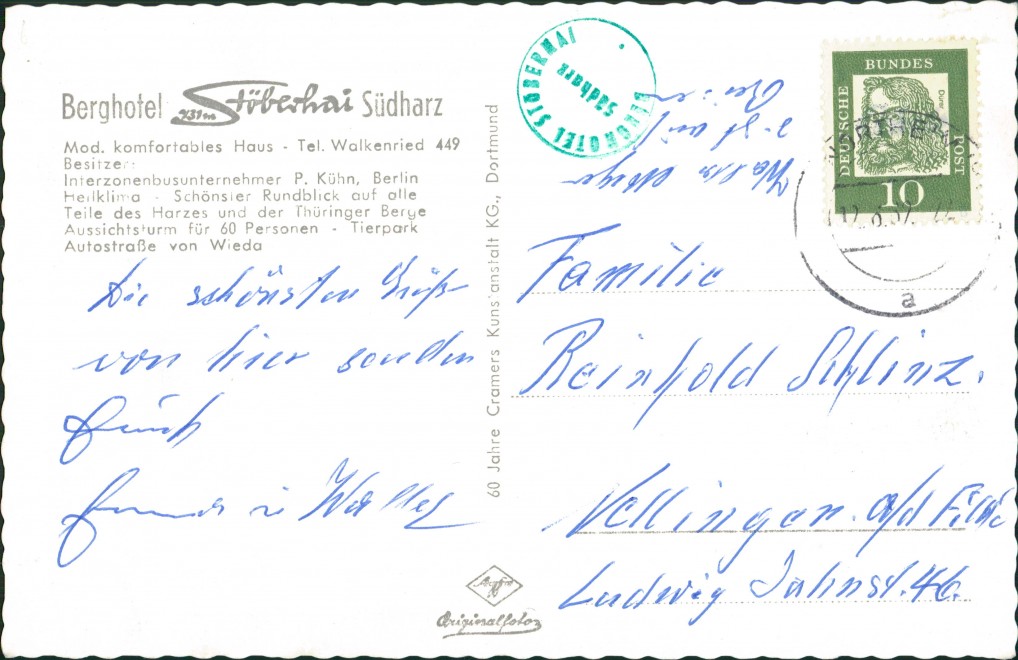 Berghotel Stöberhai Südharz
731m
Mod. komfortables Haus - Tel. Walkenried 449
Besitzer:
Interzonenbusunternehmer P. Kühn, Berlin
Heilklima - Schönster Rundblick auf alle
Teile des Harzes und der Thüringer Berge
Aussichtsturm für 60 Personen - Tierpark
Autostraße von Wieda
Die schönsten Grüße
von hier senden
Euch
Emma u Walter
60 Jahre Cramers Kunstanstalt KG., Dortmund
BERGHOTEL STÖBERHAI
Südharz
DEUTSCHE
BUNDES
POST
Dürer
10
a
Familie
Reinhold Schlinz.
Nellingen a/d Filde
Ludwig Jahnst. 46.
Agfa
Originalfoto